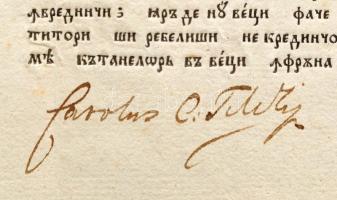 ѧвредничи: ꙗръ де нꙋ ве́ци фаче
титори ши ребелиши не крединчо
мѣ кътанелѡръ въ ве́ци ѧфръна
Carolus C. Teleki